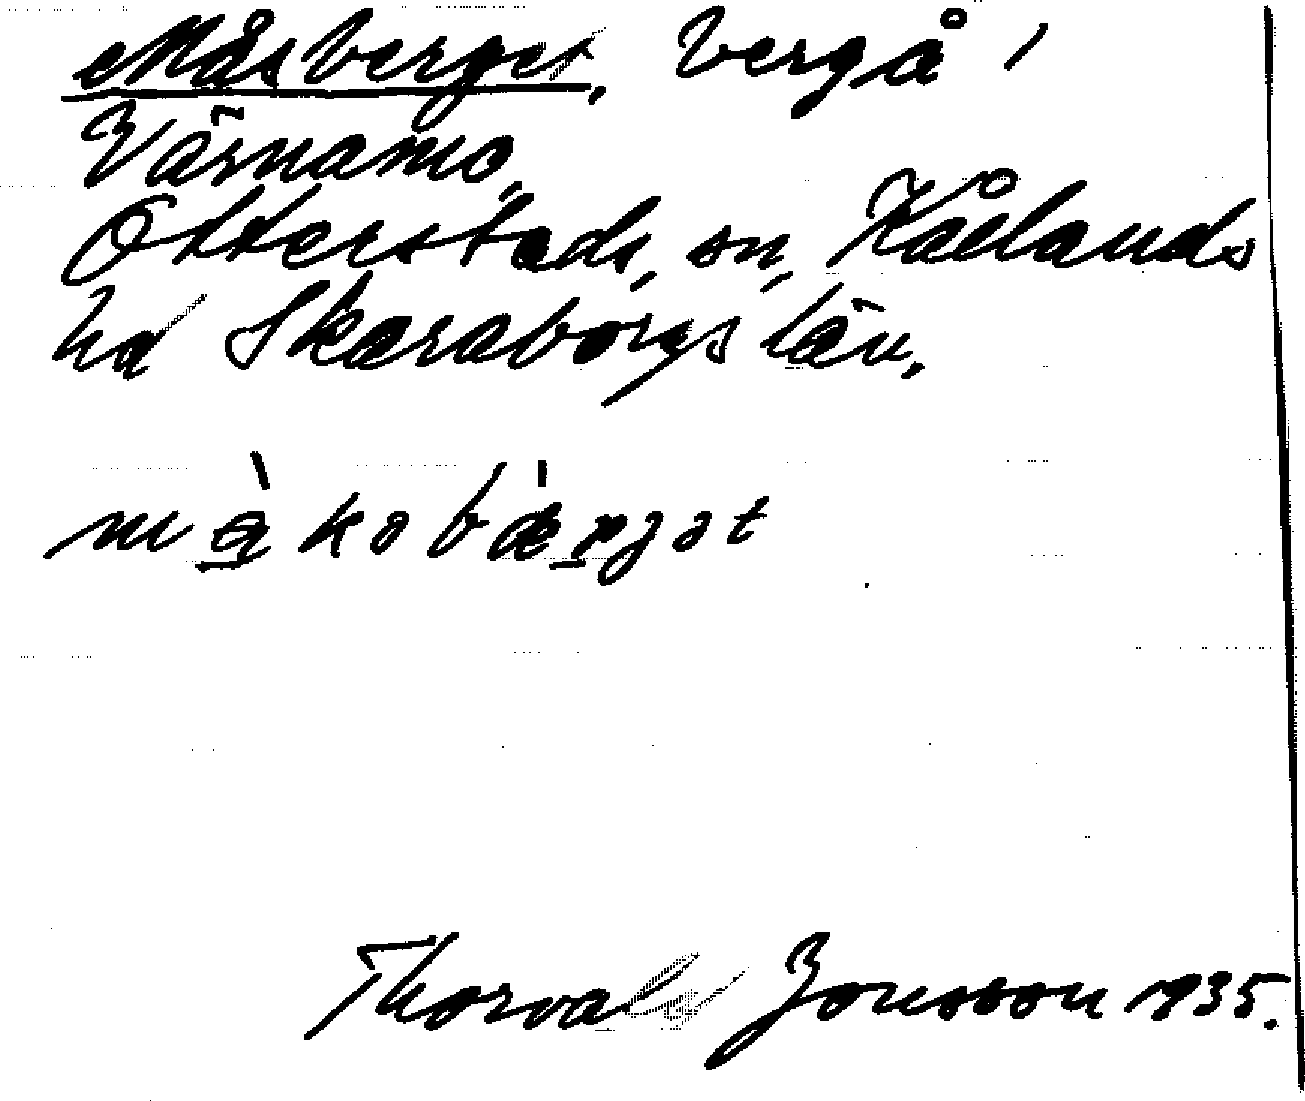 Måsberget, berg å
Värnamo,
Otterstads sn, Kållands
hd Skaraborgs län.
Thorvald Jonsson 1935.